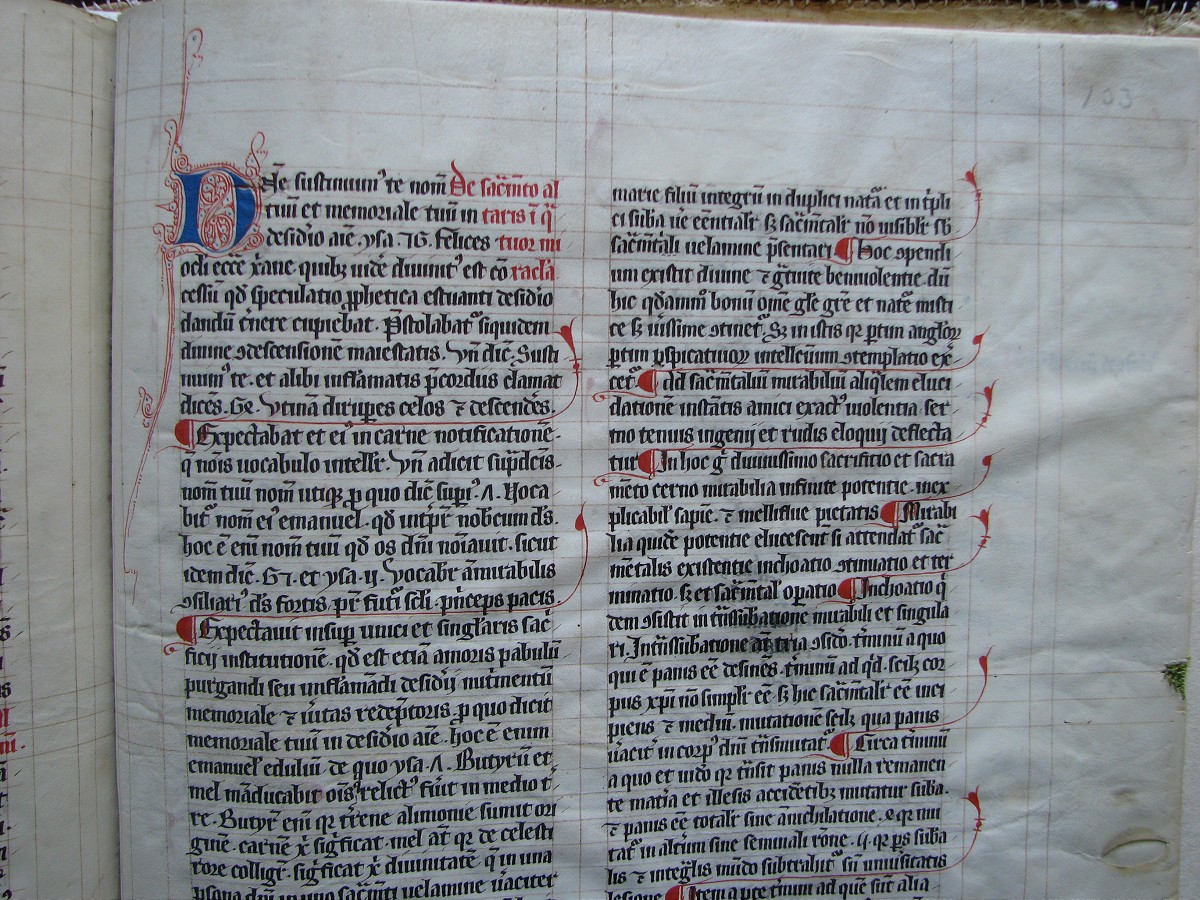 Dñe sustinuim᷒ te nom̄
De sac̄m̄to al
tuū et memoriale tuū in
taris ī q̄
desid̓io aīe. ysa. 26. Felices
tuor mi
oculi ecc̄e xp̄iane quibȝ uid̓e diuinit᷒ est cō
racl̓a
cessū qd̓ speculatio ꝓphetica estuanti desid̓io
dandū c̓nere cupiebat. P̄stolabat᷒ siquidem
diuine ꝯdescensionē maiestatis. Vn̄ dic̄. Susti
nuim᷒ te. et alibi inflāmatis p̄cordiis clamat
dicēs. 64. Vtinā dirūpes celos ⁊ descend̓es.
Expectabat et ei᷒ in carne notificationē.
q̄ nōis uocabulo intellr̄. Vn̄ adicit sup̄dictis.
nom̄ tuū nom̄ utiqȝ ꝑ quo dic̄ sup̓i᷒. 7. Uoca
bit᷒ nom̄ ei᷒ emanuel. qd̓ int̓pr̄ nobiscum d̄s.
hoc ē em̄ nom̄ tuū qd̓ os dn̄i nōiauit. sicut
idem dic̄. 62. et ysa. ij. Vocabr̄ ām̄irabilis
ꝯsiliari᷒ d̄s fortis. pr̄ futi᷒ sc̄li. pn̓ceps pacis
Expectauit insuꝑ unici et sing̓laris sac̓
ficij institutionē. qd̓ est etiā amoris pabulū
purgandi seu inflāmādi desid̓ij nut̓mentū
memoriale ⁊ u̓itas redēptoris ꝑ quo dicit
memoriale tuū in desid̓io aīe. hoc ē enim
emanuel᷒ eduliū. de quo ysa. 7. Butyrū et
mel māducabit oīs᷒ relict᷒ fu̓it in medio t̓
re. Butyr᷒ em̄ qr t̓rene alimonie sumit ori
ginē. carnē x̄ sig̓ficat. mel aūt qr de celesti
rore collig̓t. sig̓ficat x̄ diuinitatē q̄ in una
ꝑsona dn̄i in uno sac̄m̄ti uelamine u̓aciter
133
marie filiū integrū in duplici nat̓a et in t̓pli
ci suba u̓e cēntialr̄ sȝ sac̄m̄talr̄ nō uisiblr̄ sb̄
sac̄m̄tali uelamine p̄sentari Hoc ꝯpendi
um existit diuine ⁊ g̓tuite beniuolentie. dū
hic qd̓ammo᷒ bonū om̄e gl̓e gr̄e et nat̓e misti
ce sȝ u̓issime ꝯtinet᷒. Sȝ in istis qr ꝑtim anglor̄
ꝑtim ꝑspicatiuior̄ intellectuum ꝯtemplatio ex
cet᷒. ad sac̄m̄talium mirabiliū aliq̓lem eluci
dationē instātis amici exact᷒ uiolentia ser
mo tenuis ingenij et rudis eloquij deflecta
tur In hoc g̓ diuinissimo sacrificio et sacra
mēto cerno mirabilia infinite potentie. inex
plicabil̓ sapiē. ⁊ melliflue pietatis Mirabi
lia quidē potentie elucescent si attendat᷒ sac̄
mētalis existentie inchoatio ꝯtinuatio et ter
minatio. sȝ et sac̄m̄tal̓ opatio Inchoatio q̓
dem ꝯsistit in t̓nssubatione mirabili et singula
ri. In t̓nssubatione aūt tria ꝯsid̓o. t̓minū a quo
qui ē panis eē desinēs. t̓minū ad qd̓. scilȝ cor
pus xp̄i nō simplr̄ eē. sȝ hic sac̄m̄talr̄ eē inci
piens ⁊ mediū mutationē scilȝ qua panis
u̓acit̓ in corp᷒ dn̄i t̓nsmutat᷒ Circa t̓minū
a quo et uid̓o qr t̓nsit panis nulla remanen
te mat̓ia et illesis accid̓tibȝ mutatur suba.
⁊ panis eē totalr̄ sine ānichilatione. ꝯqr mu
tat᷒ in alt̓um sine seminali rōne. ij. qr ꝑs suba
lis ⁊ integ̓lis mūdo subtrahit᷒ sn̄ uniūsitatis
lesione Item a ꝑte t̓minū ad quē sūt alia